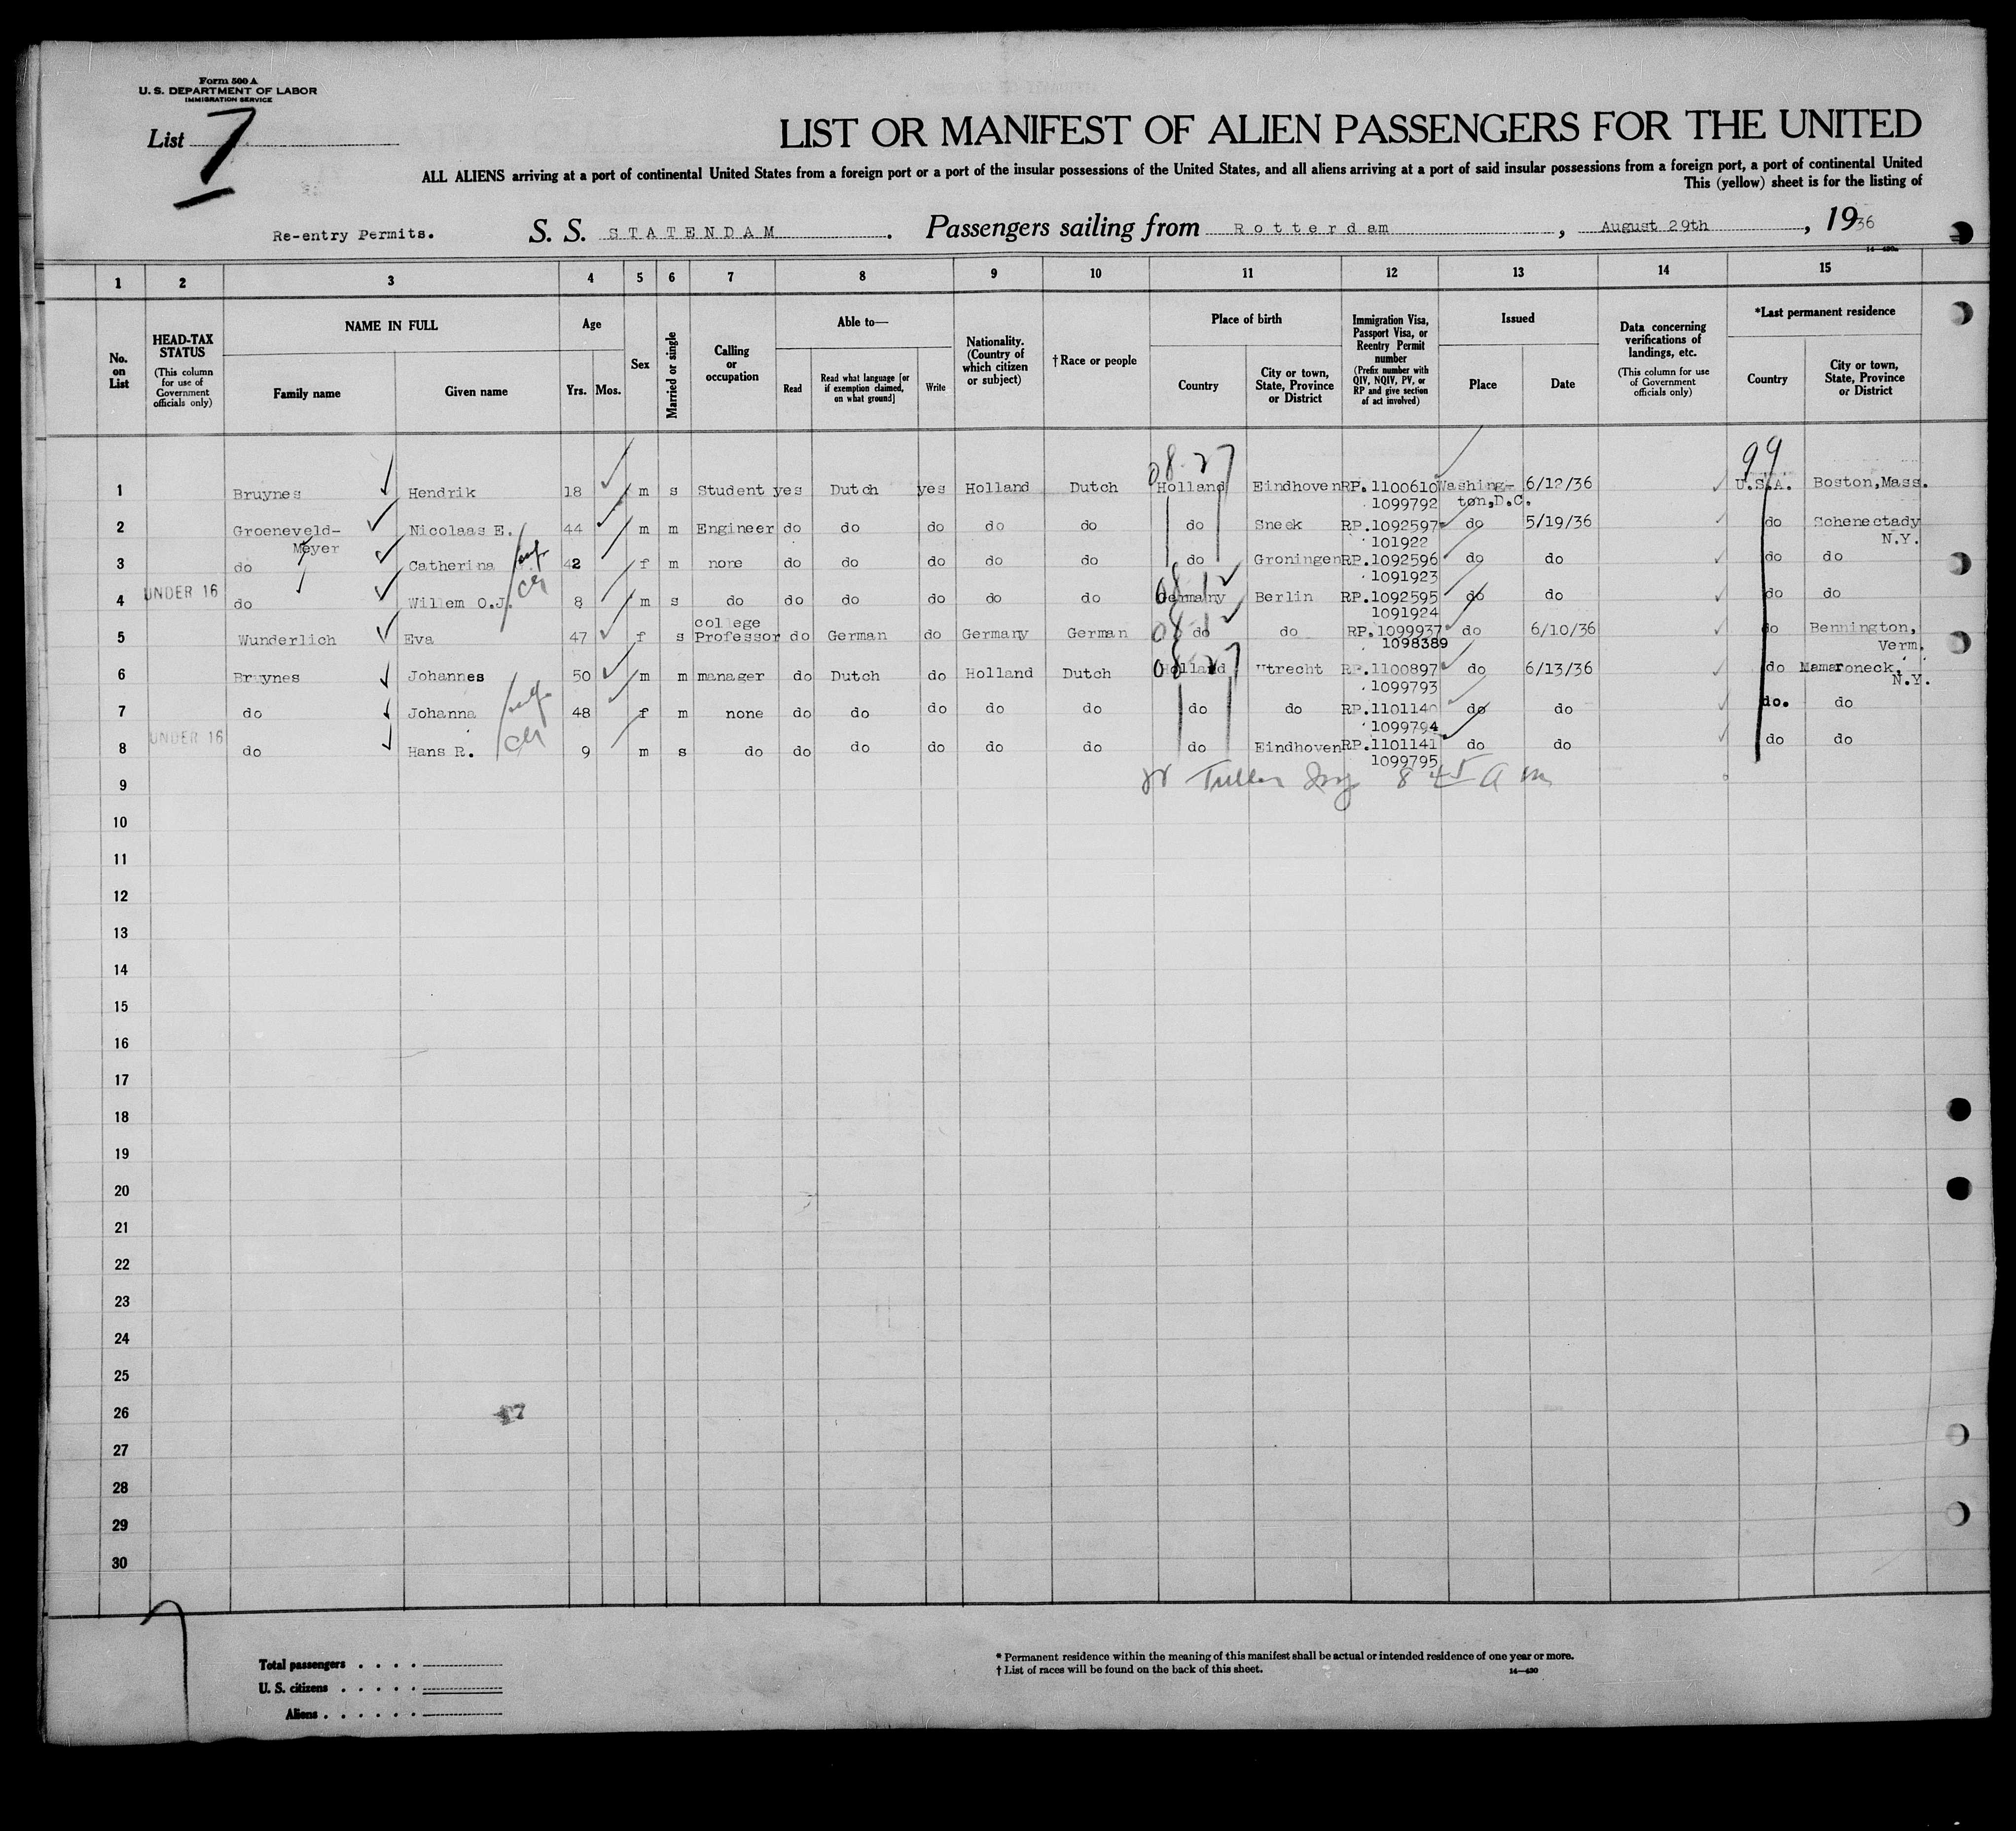 Form 500 A
U. S. DEPARTMENT OF LABOR
IMMIGRATION SERVICE
List 7
LIST OR MANIFEST OF ALIEN PASSENGERS FOR THE UNITED
ALL ALIENS arriving at a port of continental United States from a foreign port or a port of the insular possessions of the United States, and all aliens arriving at a port of said insular possessions from a foreign port, a port of continental United
This (yellow) sheet is for the listing of
Re-entry Permits. S. S. STATENDAM. Passengers sailing from Rotterdam, August 29th, 1936
14—430a
1 2 3 4 5 6 7 8 9 10 11 12 13 14 15
No. on List
HEAD-TAX STATUS (This column for use of Government officials only)
NAME IN FULL
Family name Given name
Age
Yrs. Mos.
Sex
Married or single
Calling or occupation
Able to—
Read
Read what language [or if exemption claimed, on what ground]
Write
Nationality. (Country of which citizen or subject)
†Race or people
Place of birth
Country
City or town, State, Province or District
Immigration Visa, Passport Visa, or Reentry Permit number (Prefix number with QIV, NQIV, PV, or RP and give section of act involved)
Issued
Place Date
Data concerning verifications of landings, etc. (This column for use of Government officials only)
*Last permanent residence
Country
City or town, State, Province or District
08-27 99
1 Bruynes Hendrik 18 m s Student yes Dutch yes Holland Dutch Holland Eindhoven RP.1100610 Washing- 6/12/36 U.S.A. Boston,Mass.
1099792 ton,D.C.
2 Groeneveld- Nicolaas E. 44 m m Engineer do do do do do do Sneek RP.1092597 do 5/19/36 do Schenectady
Meyer 101922 N.Y.
3 do Catherina 42 f m none do do do do do do Groningen RP.1092596 do do do do
1091923
UNDER 16
4 do Willem O.J. 8 m s do do do do do do Germany Berlin RP.1092595 do do do do
08-12
1091924
college
5 Wunderlich Eva 47 f s Professor do German do Germany German do do RP.1099937 do 6/10/36 do Bennington,
1098389 Verm.
08-27
6 Bruynes Johannes 50 m m manager do Dutch do Holland Dutch Holland Utrecht RP.1100897 do 6/13/36 do Mamaroneck,
1099793 N.Y.
7 do Johanna 48 f m none do do do do do do do RP.1101140 do do do. do
1099794
UNDER 16
8 do Hans R. 9 m s do do do do do do do Eindhoven RP.1101141 do do do do
1099795
9
8 45 a m
10
11
12
13
14
15
16
17
18
19
20
21
22
23
24
25
26
27
28
29
30
Total passengers . . . .
U. S. citizens . . . . .
Aliens . . . . . .
* Permanent residence within the meaning of this manifest shall be actual or intended residence of one year or more.
† List of races will be found on the back of this sheet. 14—430